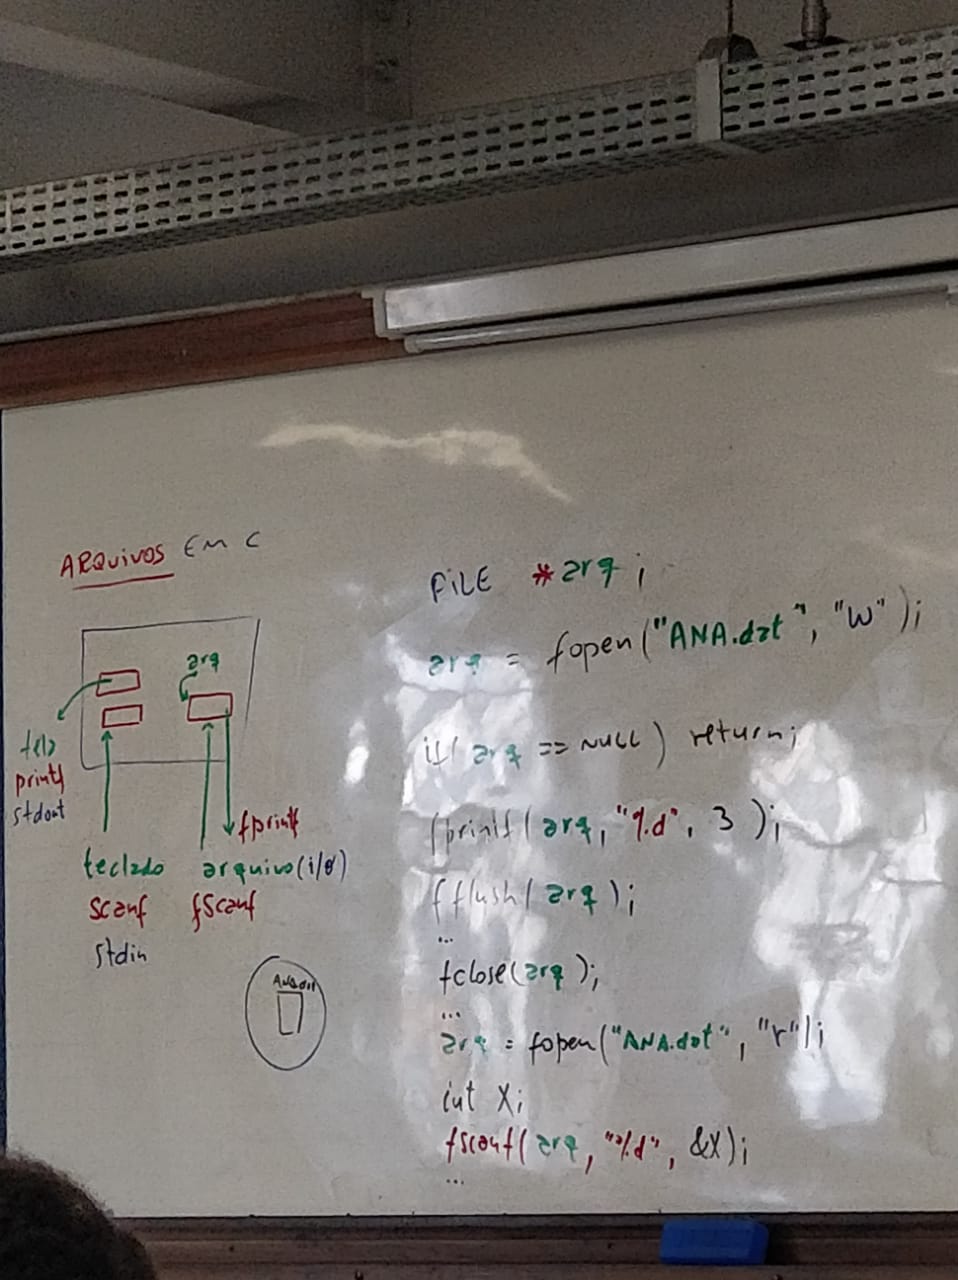 ARQUIVOS EM C
arq
tela
printf
stdout
fprintf
teclado
scanf
stdin
arquivo(i/o)
fscanf
FILE *arq;
arq = fopen("ANA.dat", "w");
if( arq == NULL ) return;
fprintf( arq, "%d", 3 );
fflush( arq );
...
fclose(arq );
...
arq = fopen("ANA.dat", "r");
int X;
fscanf( arq, "%d", &X);
...